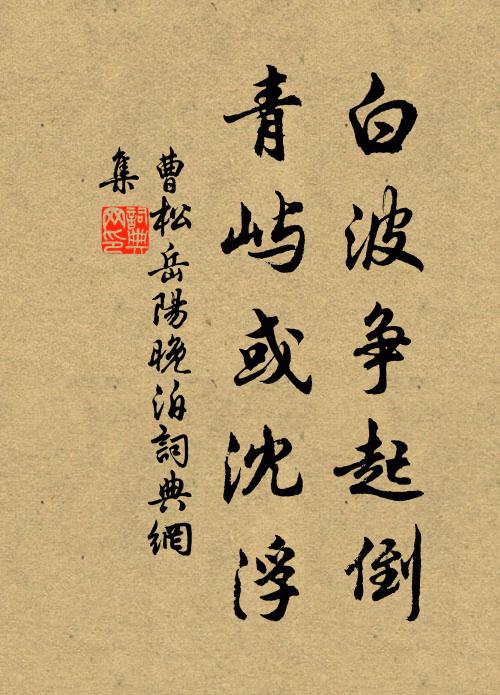 白波争起倒
青屿或沈浮
曹松岳陽晚泊詞典網
集
詞典网印